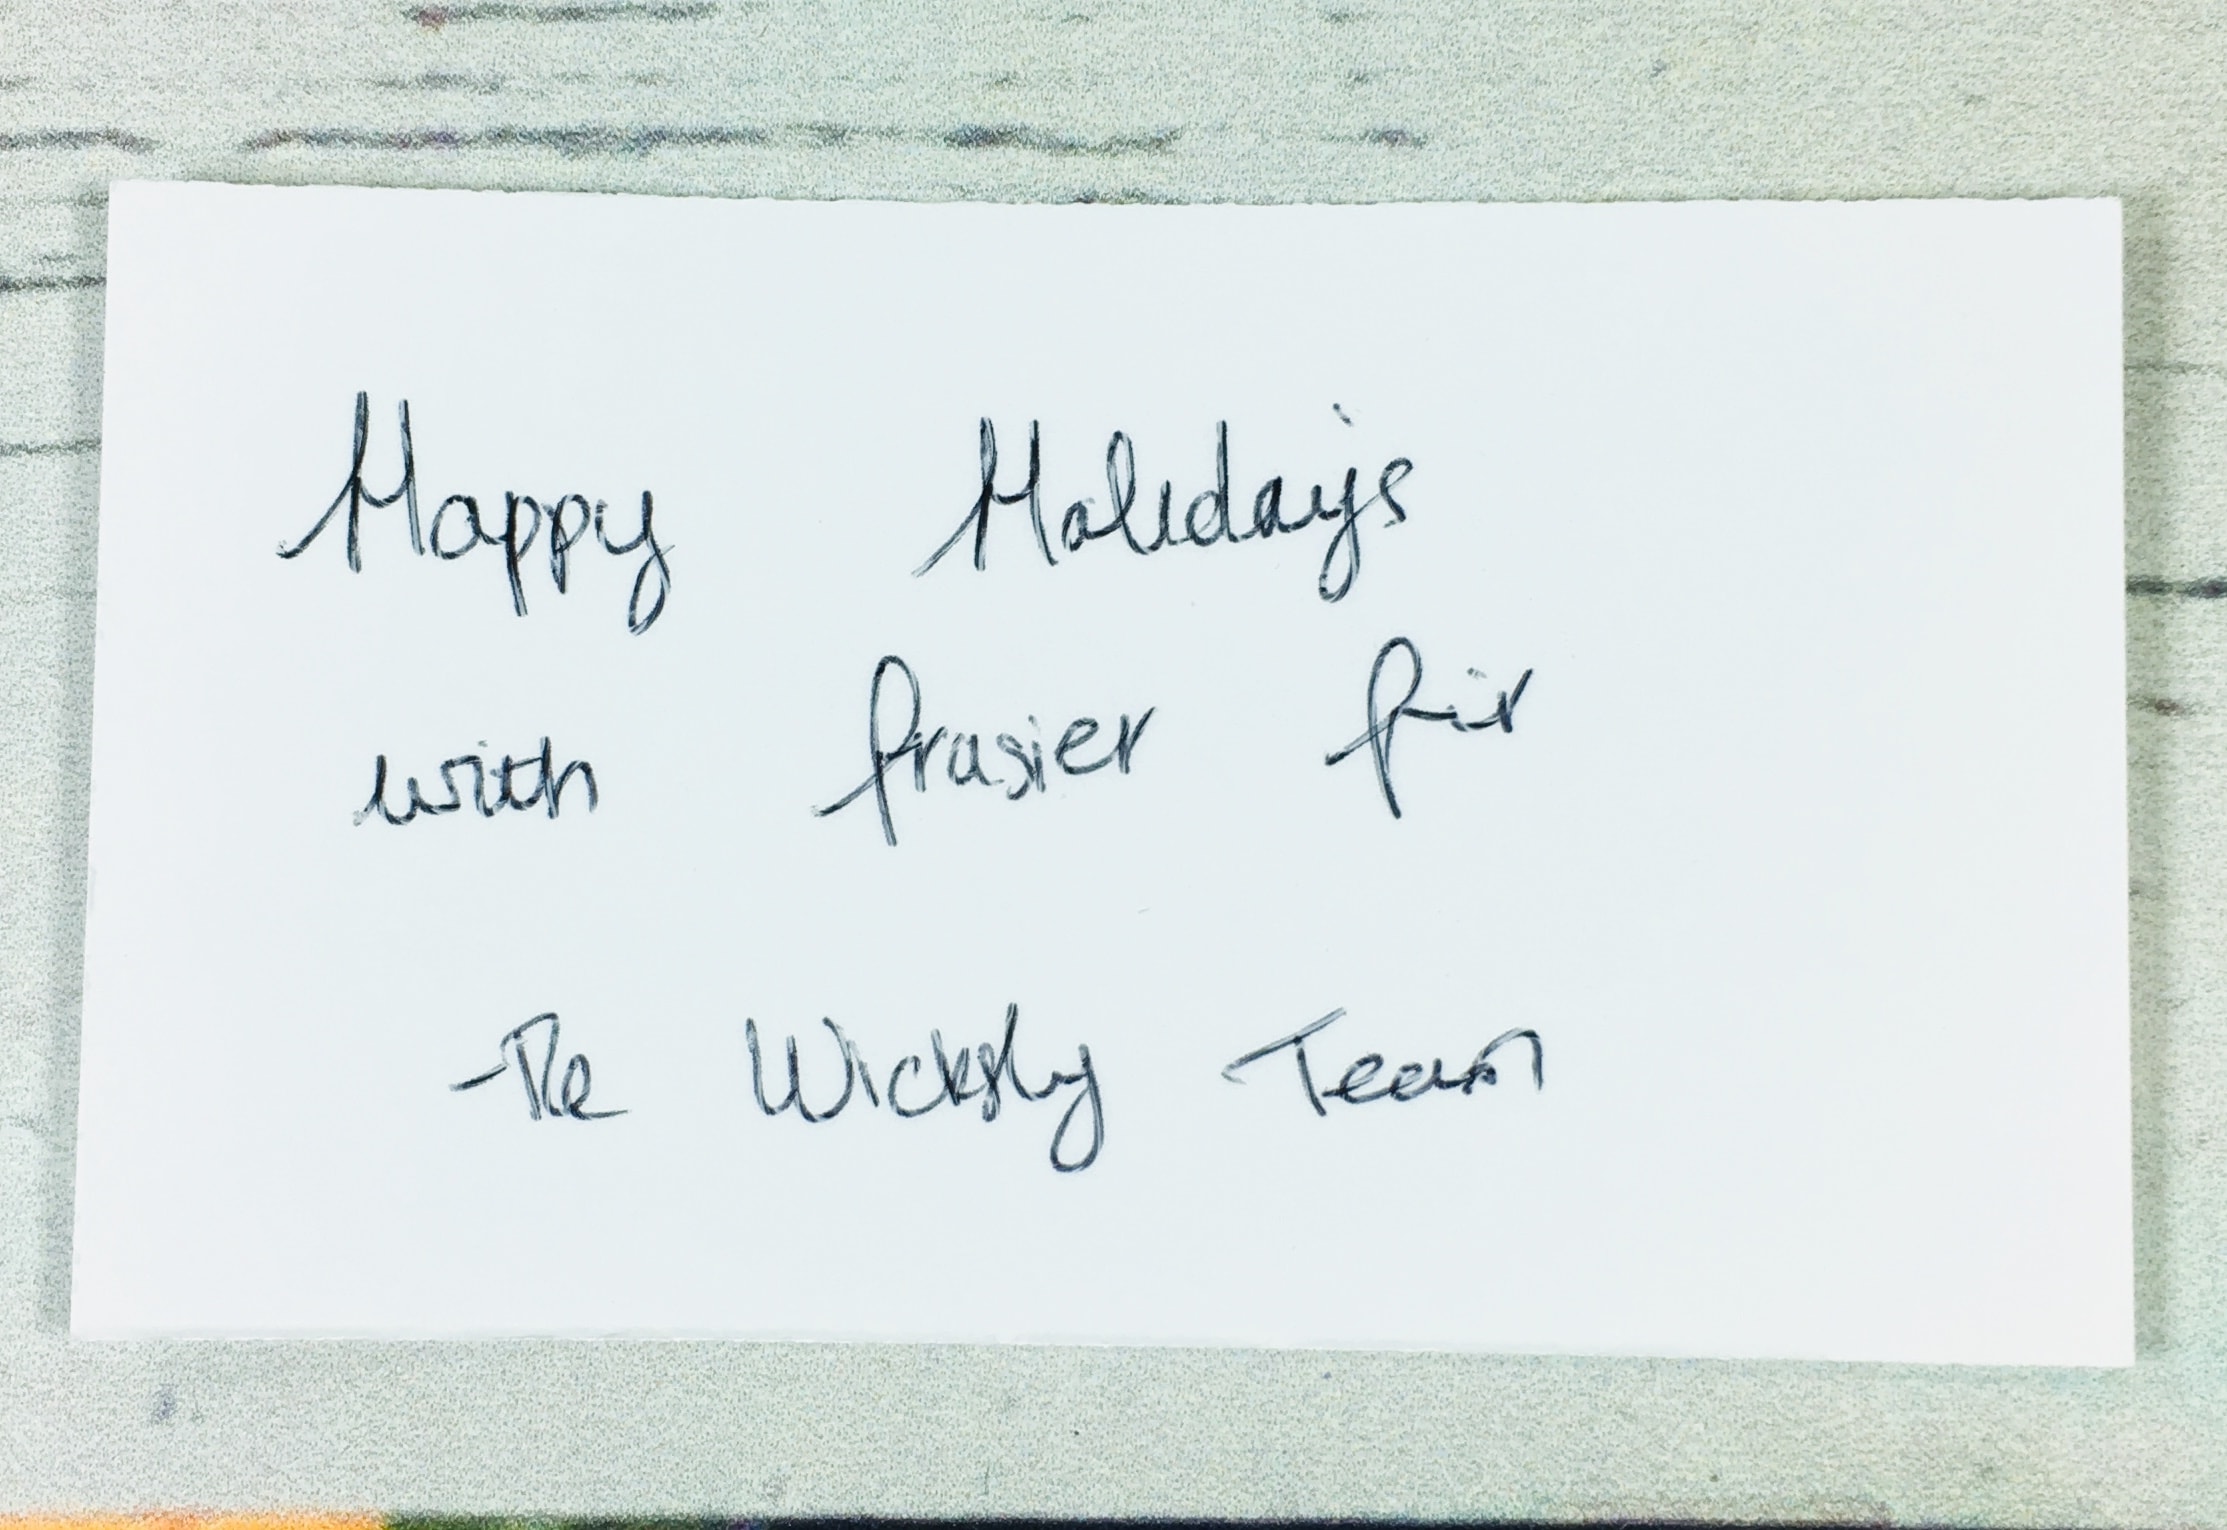 Happy Holidays
with frasier fir
-The Wicksly Team